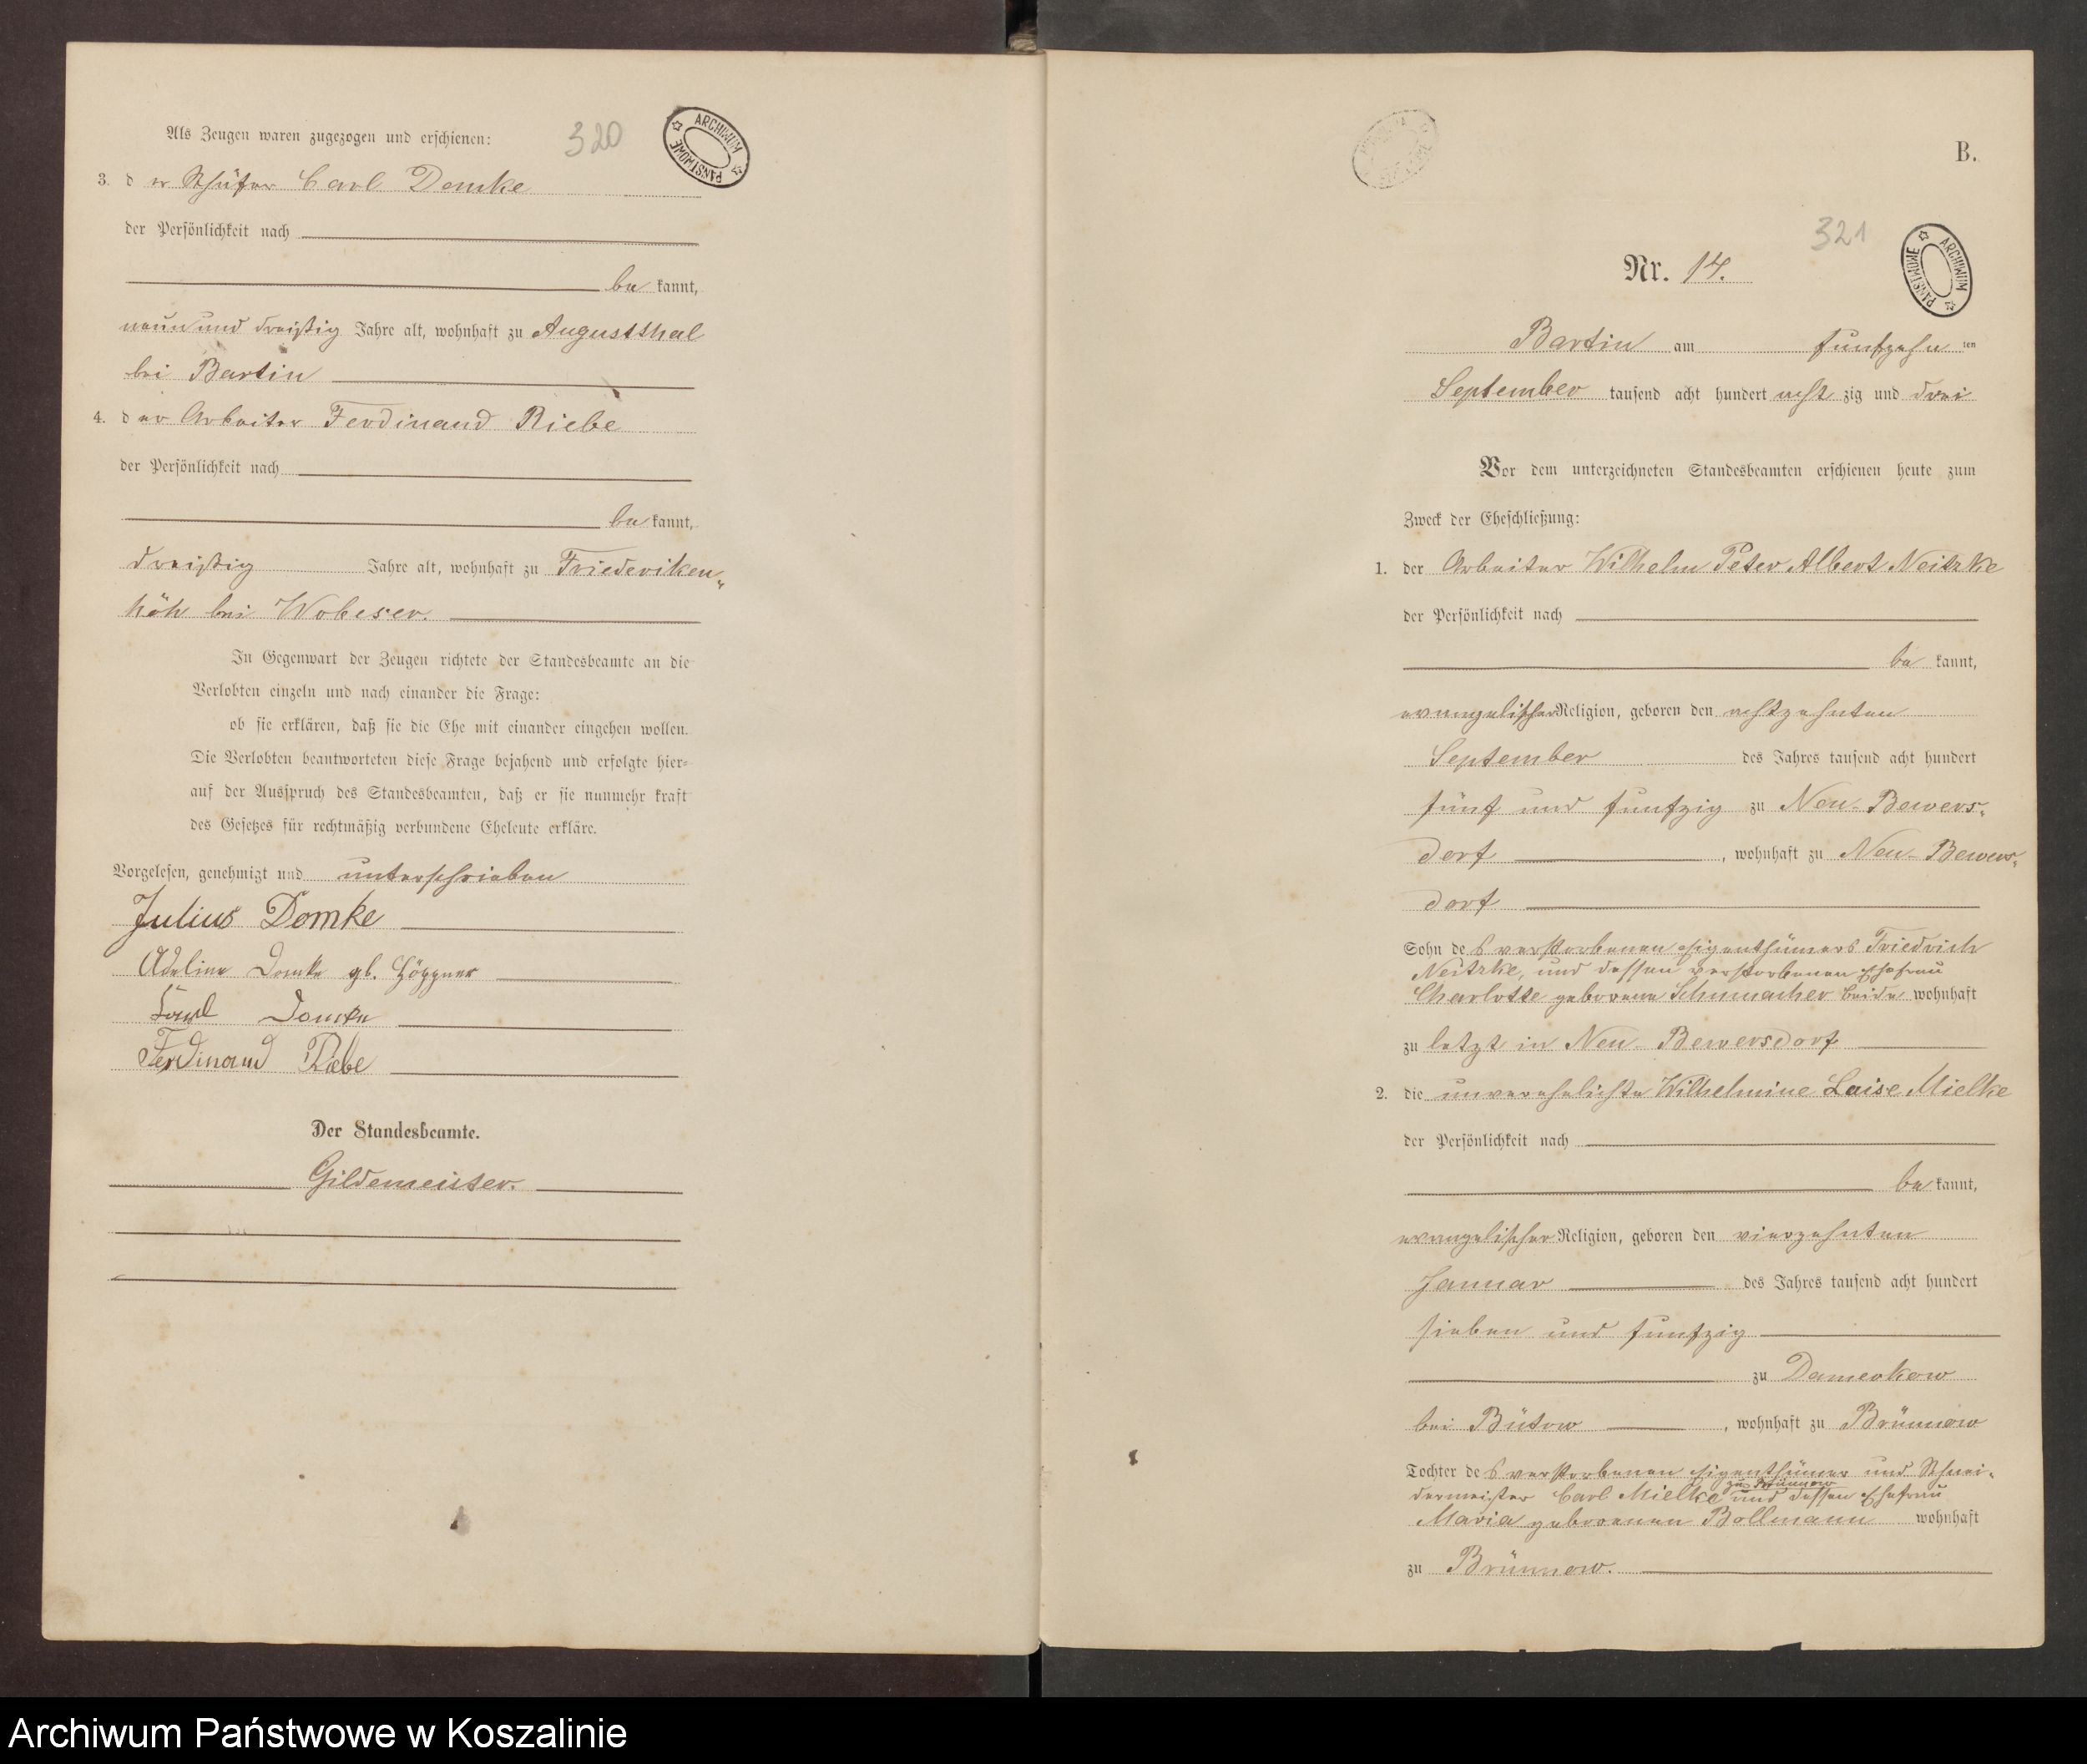 Als Zeugen waren zugezogen und erschienen:
320
ARCHIWUM PAŃSTWOWE
3. der Schäfer Carl Domke
der Persönlichkeit nach
bekannt,
neun und dreißig Jahre alt, wohnhaft zu Augustthal
bei Bartin
4. der Arbeiter Ferdinand Riebe
der Persönlichkeit nach
bekannt,
dreißig Jahre alt, wohnhaft zu Friederiken„
höh bei Wobeser.
In Gegenwart der Zeugen richtete der Standesbeamte an die
Verlobten einzeln und nach einander die Frage:
ob sie erklären, daß sie die Ehe mit einander eingehen wollen.
Die Verlobten beantworteten diese Frage bejahend und erfolgte hier-
auf der Ausspruch des Standesbeamten, daß er sie nunmehr kraft
des Gesetzes für rechtmäßig verbundene Eheleute erkläre.
Vorgelesen, genehmigt und unterschrieben
Julius Domke
Adeline Domke gb. Höppner
Carl Domke
Ferdinand Riebe
Der Standesbeamte.
Gildemeister.
B.
321
ARCHIWUM PAŃSTWOWE
Nr. 14.
Bartin am funfzehnten
September tausend acht hundert achtzig und drei
Vor dem unterzeichneten Standesbeamten erschienen heute zum
Zweck der Eheschließung:
1. der Arbeiter Wilhelm Peter Albert Neitzke
der Persönlichkeit nach
bekannt,
evangelischer Religion, geboren den achtzehnten
September des Jahres tausend acht hundert
fünf und funfzig zu Neu-Bewers„
dorf, wohnhaft zu Neu-Bewers„
dorf
Sohn des verstorbenen Eigenthümers Friedrich
Neitzke, und dessen verstorbenen Ehefrau
Charlotte geborene Schumacher beide wohnhaft
zu letzt in Neu-Bewersdorf
2. die unverehelichte Wilhelmine Luise Mielke
der Persönlichkeit nach
bekannt,
evangelischer Religion, geboren den vierzehnten
Januar des Jahres tausend acht hundert
sieben und funfzig
zu Damerkow
bei Bütow, wohnhaft zu Brünnow
Tochter des verstorbenen Eigenthümer und Schnei„
zu Brünnow
dermeister Carl Mielke und dessen Ehefrau
Maria geborenen Bollmann wohnhaft
zu Brünnow.
Archiwum Państwowe w Koszalinie